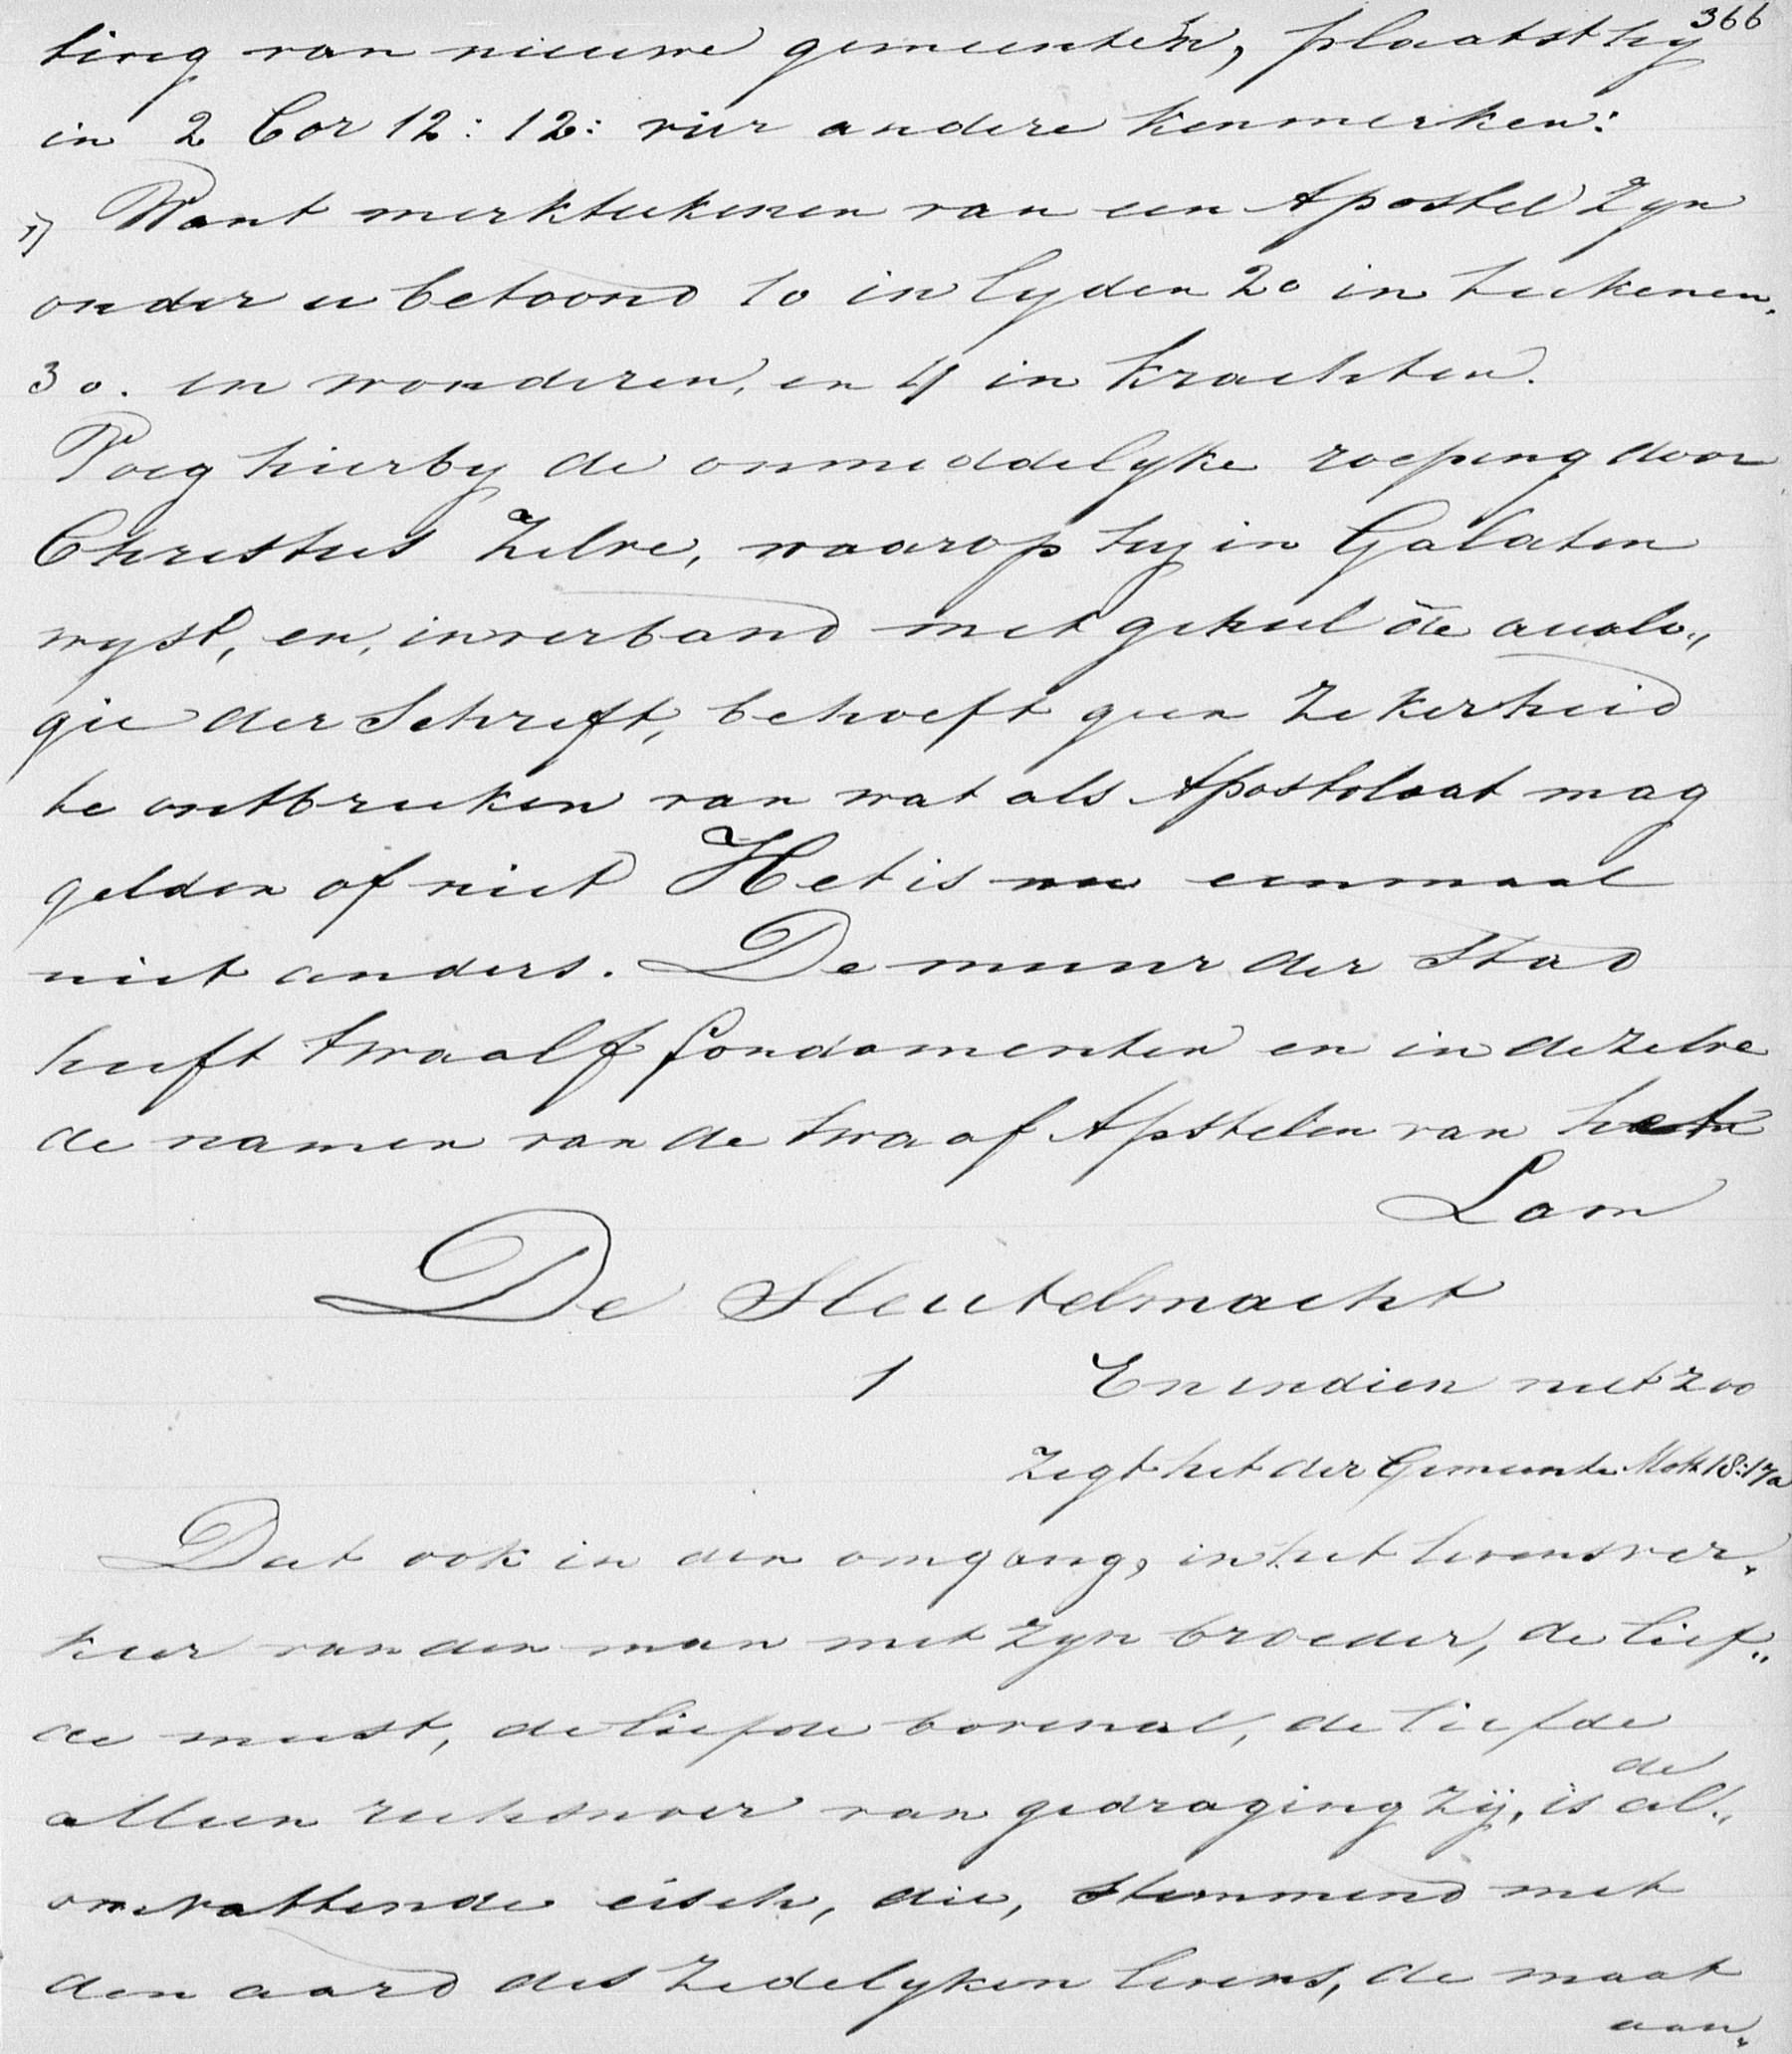 366
ting van nieuwe gemeenten, plaatst hy
in 2 Cor 12: 12: vier andere kenmerken:
"Want merkteekenen van een Apostel zyn
onder u betoond 1o in lyden 2o in teekenen.
3o. in wonderen, en 4 in krachten.
Voeg hierby de onmiddelyke roeping door
Christus Zelve, waarop hy in Galaten
wyst, en, in verband met geheel de analo„
gie der Schrift, behoeft geen zekerheid
te ontbreeken van wat als Apostolaat mag
gelden of niet Het is nu eenmaal
niet anders. De muur der Stad
heeft twaalf fondamenten en in dezelve
de namen van de twaaf Apstelen van het
Lam
De Sleutelmacht
1 En indien niet zoo
Zegt het der Gemeente Math 18:17a
Dat ook in den omgang, in het levensver„
keer van den man met zyn broeder, de lief„
de meest, de liefde bovenal, de liefde
de
alleen richsnoer van gedraging zij, is al„
omvattende eisch, die, stemmend met
den aard des zedelyken levens, de maat
aan„